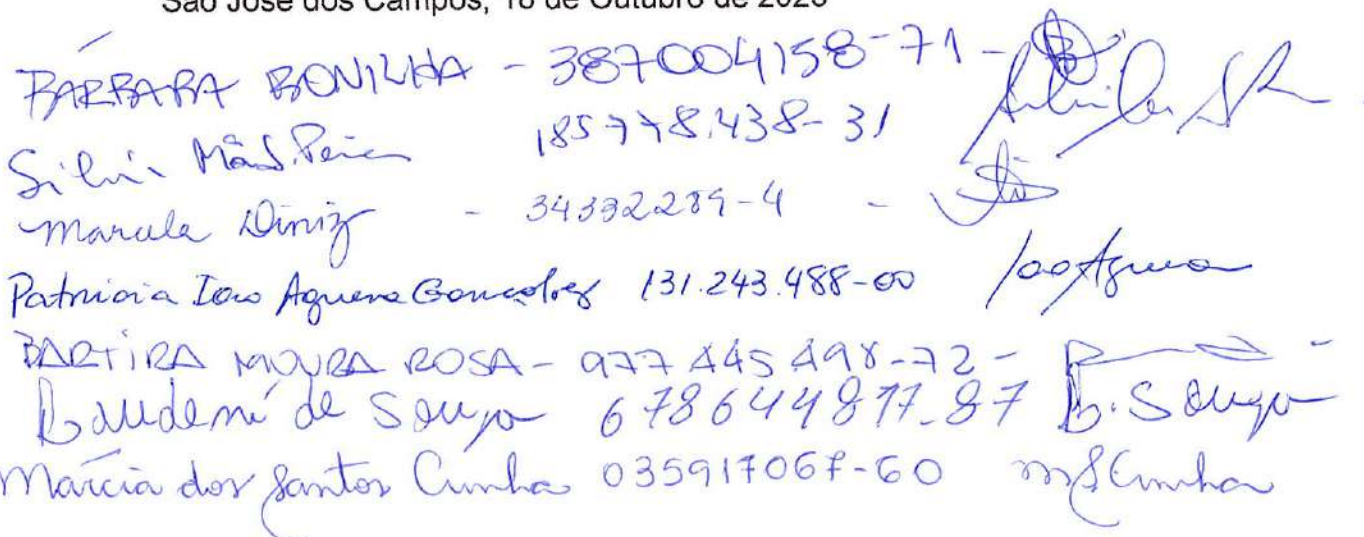 São José dos Campos, 18 de Outubro de 2023
BÁRBARA BONILHA - 387004158-71 -
Silvia 185778.438-31
Marcela Diniz - 34392289-4 -
Patricia Ioo Aguena Gonçalves 131.243.488-00 IooAguena
BARTIRA MOURA ROSA - 977 445 498-72 -
de Souza 678644877-87 B. Souza
Márcia dos Santos Cunha 035917067-60 MSCunha